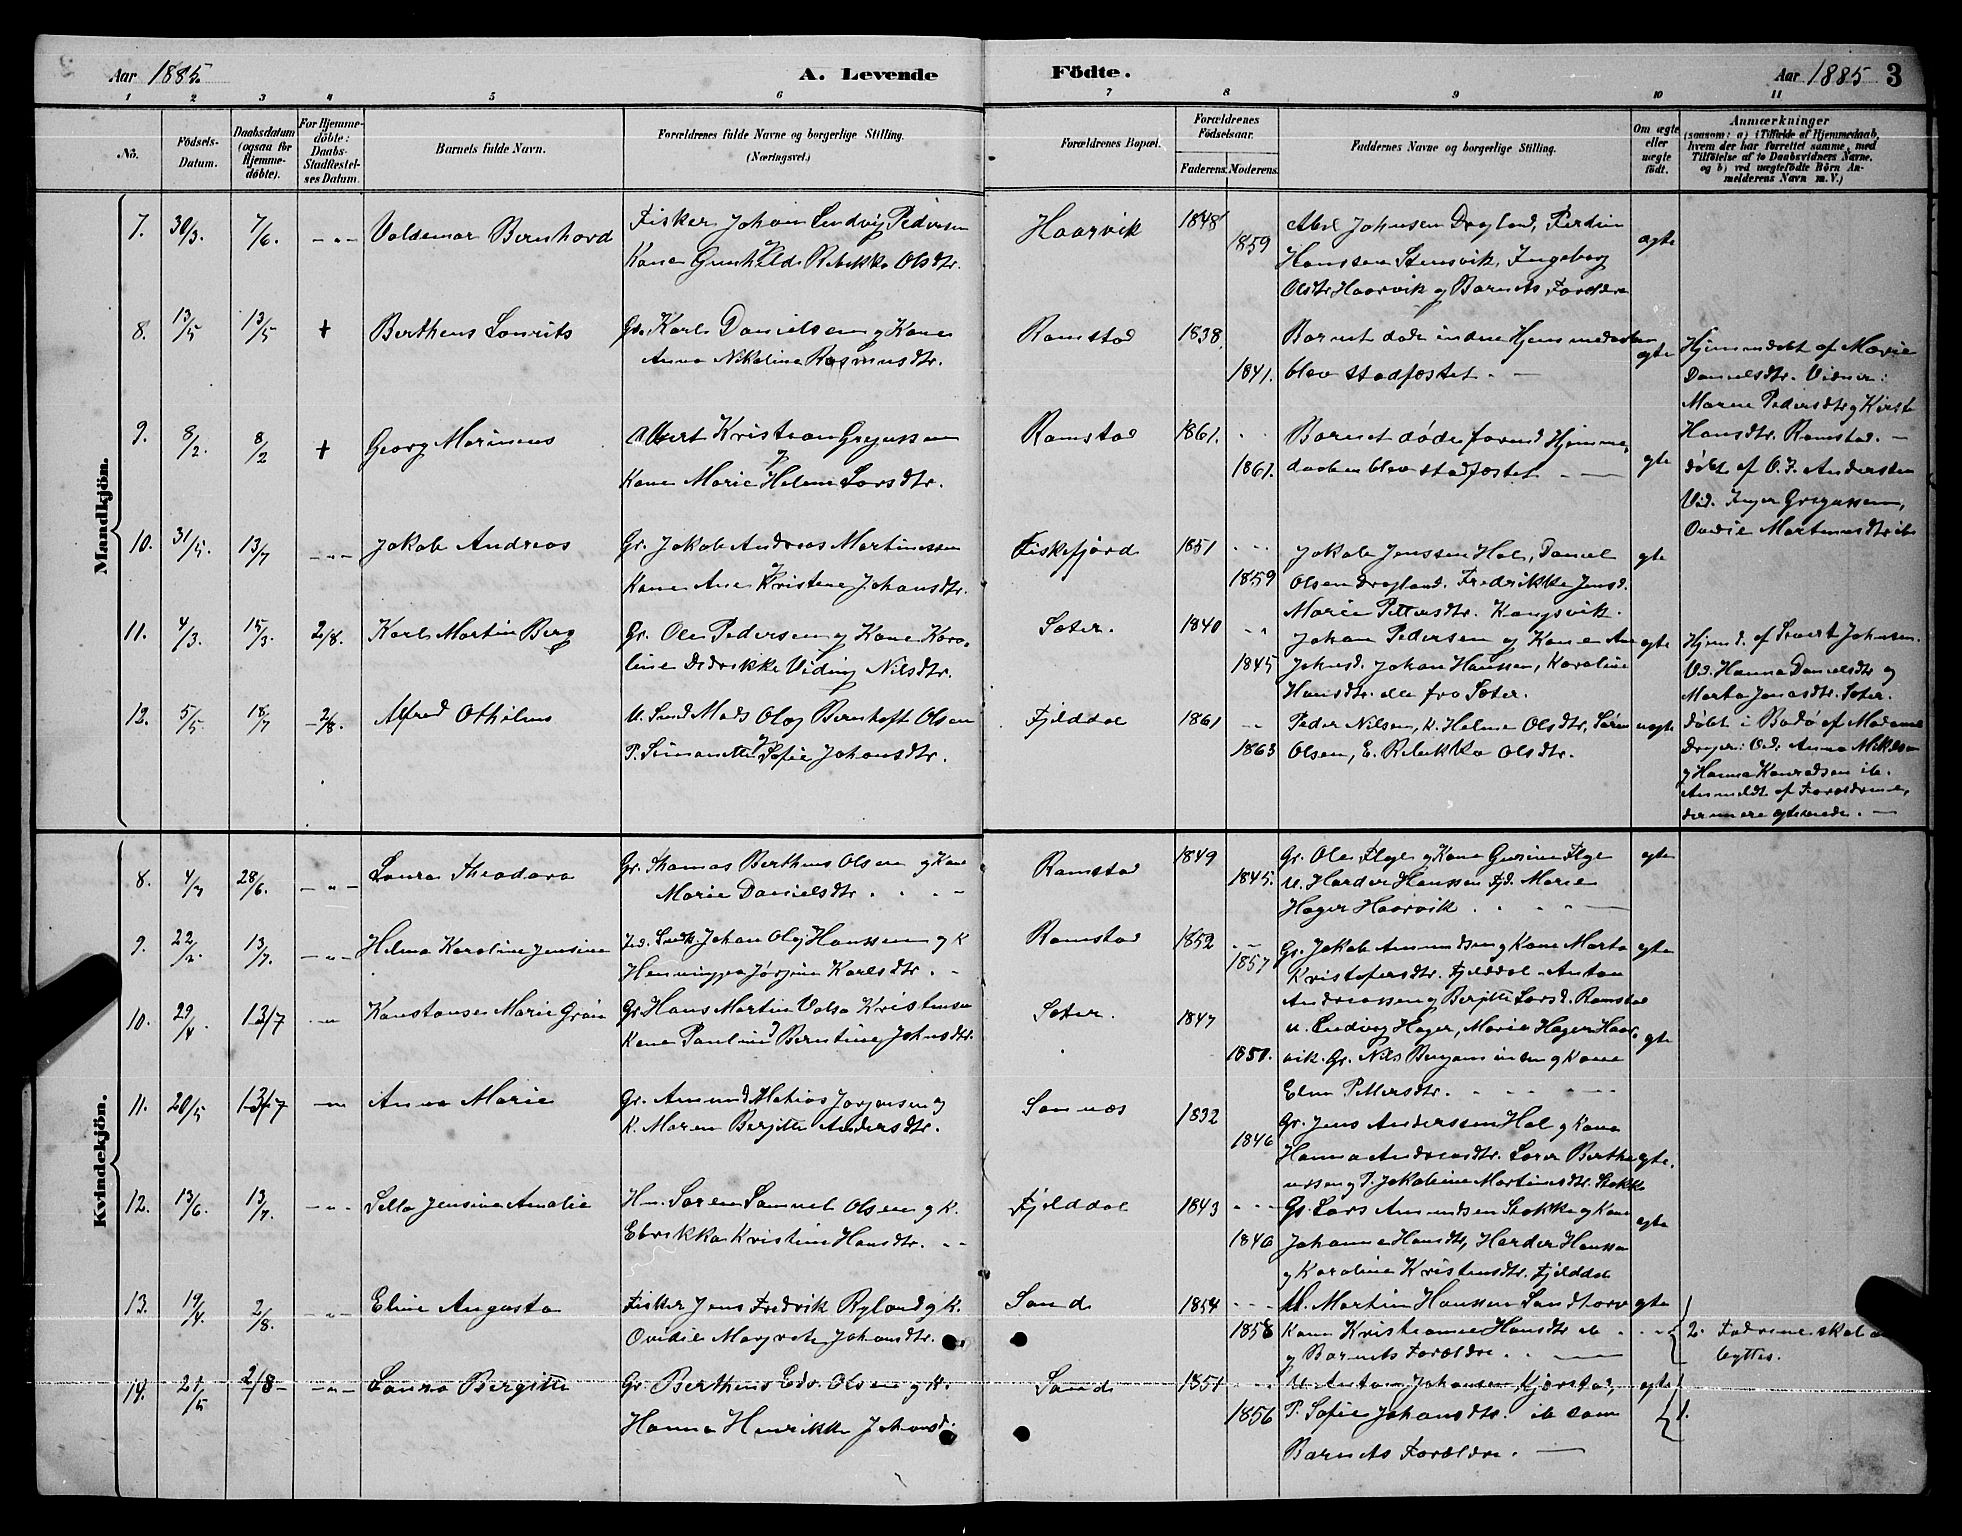 Aar 1885. A. Levende Födte. Aar 1885 3
1 2 3 4 5 6 7 8 9 10 11
No. Födsels-Datum. Daabsdatum (ogsaa for Hjemme-döbte). For Hjemme-döbte: Daabs-Stadfæstelses Datum. Barnets fulde Navn. Forældrenes fulde Navne og borgerlige Stilling. (Næringsvei.) Forældrenes Bopæl. Forældrenes Födselsaar. Faderens. Moderens. Faddernes Navne og borgerlige Stilling. Om ægte eller uægte födt. Anmærkninger (saasom: a) i Tilfælde af Hjemmedaab, hvem der har forrettet samme, med Tilföielse af to Daabsvidners Navne, og b) ved uægtefödte Börn Anmelderens Navn m. V.)
Mandkjön.
7. 30/3. 7/6. - " - Valdemar Bernhard
Fisker Johan Ludvig Pedersen
Kone Gunhild Rebekka Olsdtr.
Haarvik 1848 1859
Abel Johnsen Dragland, Ferdin
Hanssen Stensvik, Ingeborg
Olsdtr Haarvik og Barnets Forældre
ægte
8. 13/5 13/5 + Berthens Laurits
Gr. Karl Danielsen og Kone
Anna Nikoline Rasmusdtr.
Ramstad 1838. 1841.
Barnet døde inden Hjemmedaaben
blev stadfæstet. -
ægte
Hjemmedøbt af Marie
Danielsdtr. Vidner:
Maren Pedersdtr og Kirst
Hansdtr. Ramstad. -
9. 8/2. 8/2 + Georg Marinius
Albert Kristian Gregussen
Kone Marie Helene Larsdtr.
Ramstad 1861. 1861.
Barnet døde forend Hjemme-
daaben blev stadfæstet. -
gte
døbt af O. J. Anderssen
Vid. Inger Gregussen,
Ovidie Martinusdtr ib
10. 31/5. 13/7 - " - Jakob Andreas
Gr. Jakob Andreas Martinussen
Kone Ane Kristine Johansdtr.
Fiskefjord 1851 1859
Jakob Jenssen Hol, Daniel
Olsen Dragland. Fredrikke Jensd.
Marie Pettersdtr. Kongsvik.
gte
11. 4/3. 15/3. 2/8. Karl Martin Berg
Gr. Ole Pedersen og Kone Karo-
line Didrikke Viding Nilsdtr.
Sæter. 1840 1845
Johan Pedersen og Kone An
Johnsd. Johan Hanssen, Karoline
Hansdtr. alle fra Sæter.
ægte
Hjemd. af Sivert Johnsen.
Vid. Hanna Danielsdtr og
Marta Jonasdtr. Sæter.
12. 5/5. 18/7 2/8. Alfred Othilius
U. Send Mads Olaj Bernhoft Olsen
P. Simanette Sofie Johansdtr.
Fjelddal 1861 1863
Peder Nilsen, K. Helene Olsdtr, Søren
Olsen, E. Rebekka Olsdtr.
uægte
døbt i Bodø af Madame
Dreyer: Vid: Anna Mikkelsen
og Hanna Konradsen ib.
Anmeldt af Forældrene,
der nu ere gteviede. -
Kvindekjön.
8. 28/6. - " - Laura Theodora
Gr. Thomas Berthens Olsen og Kone
Marie Danielsdtr. . . -
Ramstad 1849 1845.
Gr. Ole Flge og Kone Gurine Flge
U. Harder Hanssen Fjd. Marie
Hager Haarvik. . . -
gte
9. 13/7. - " - Helma Karoline Jensine
Ind. Johan Olaj Hanssen og K
Henningga Jørgine Karlsdtr. -
Ramstad 1852 1857
Gr. Jakob Amundsen og Kone Marta
Kristofersdtr. Fjelddal. Anton
Andreassen og Berjitte Larsd. Ramstad
gte
10. 29/4. 13/7 - " Konstanse Marie Grön
Gr Hans Martin Valsø Kristensen
Kone Pauline Berntine Johnsdtr.
Sæter. 1847 1851.
U. Ludvig Hager, Maria Hager Haar-
vik. Gr. Nils Benjaminsen og Kone
Elen Pettersdtr. . - -
gte
11. 20/5 13/7 - " Anna Marie
Gr. Amund Matias Jørgensen og
K. Maren Berjitte Andersdtr.
Sannæs 1832 1846
Gr. Jens Anderssen Hol og Kone
Hanna Andreasdtr. Lorer Berthe-
ussen og P. Jakobine Martinusdtr. Stokke
gte.
12. 13/6. 13/7. - " - Silla Jensine Amalie
Hm. Søren Samuel Olsen og K.
Ebrikka Kristine Hansdtr. . -
Fjelddal 1843 1840
Gr. Lars Amundsen Stokke og Kone
Johanna Hansdtr, Harder Hanssen
og Karoline Kristensdtr. Fjelddal
gte
13. 19/4. 2/8. - " - Eline Augusta
Fisker Jens Fredrik Rylandg K.
Ovidie Margrete Johansdtr.
Sand 1854 1858
U. Martin Hanssen Sandtorv
Kone Kristianne Hansdtr ib
og Barnets Forældre. . -
gte
2. Fadrene skal
byttes.
14. 21/5 2/8 - " - Launa Bergitte
Gr. Berthens Edv. Olsen og K.
Hanna Henrikke Johansd.
Sand 1851 1856
U. Anton Johansen Kjørstad,
P. Sofie Johansdtr. ib sam
Barnets Forældre. -
gte
1.